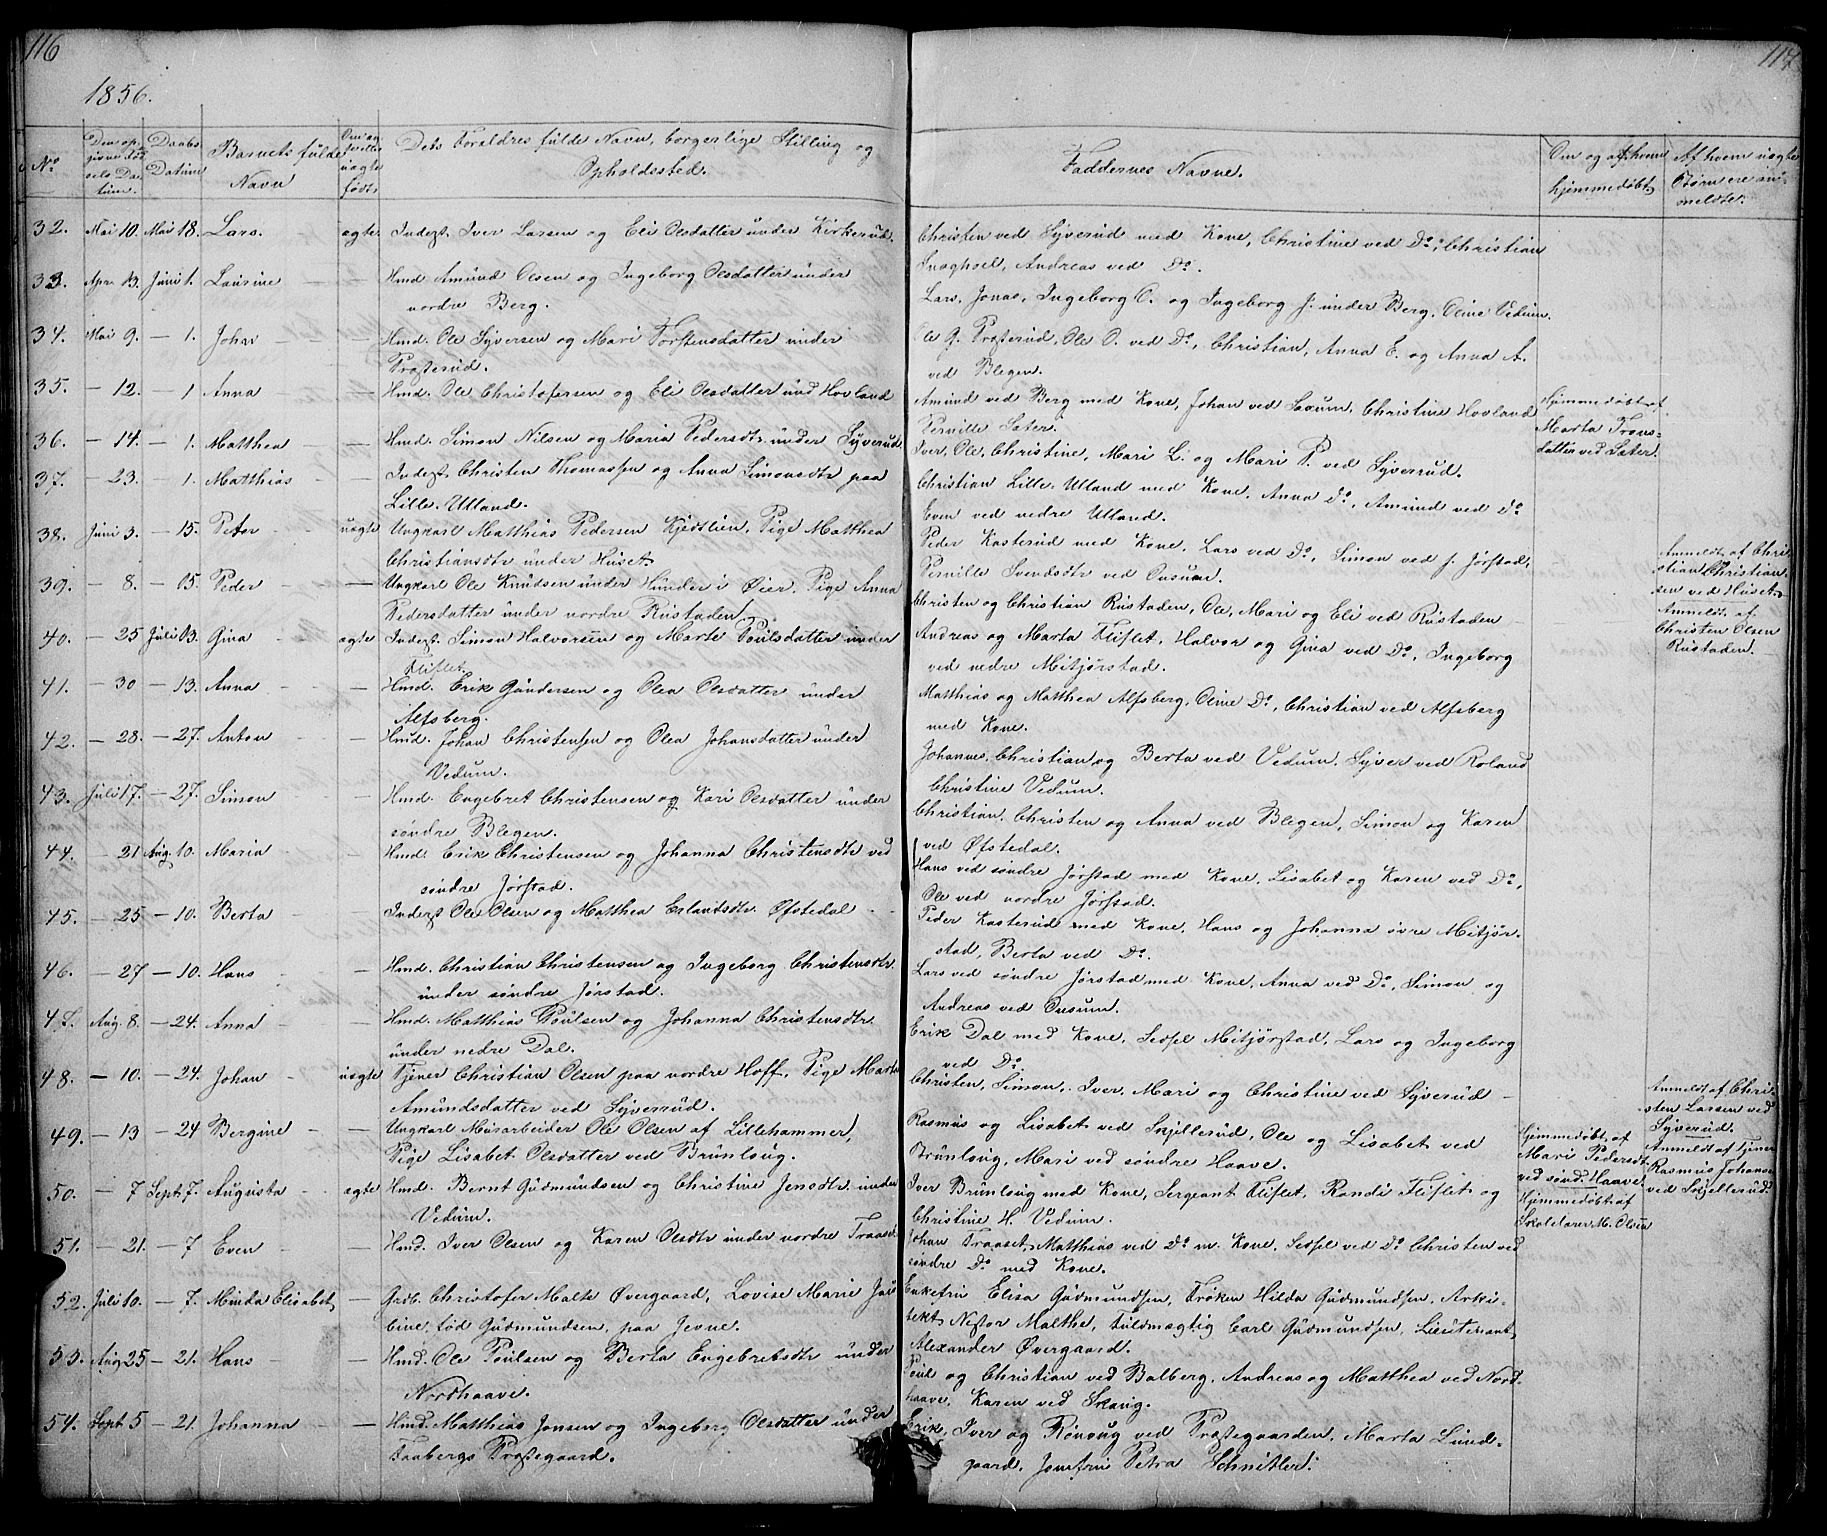 116
1856.
No
Den op-
givne Fød-
sels Da-
tum.
Daabs
Datum
Barnets fulde
Navn
Om æg-
te eller
uægte
født.
Dets Foraldres fulde Navn, borgerlige Stilling og
Opholdssted.
32. Mai 10. Mai 18. Lars. ægte Inderst. Iver Larsen og Eli Olsdatter under Kirkerud.
33. Apr. 13. Juni 1. Laurine — — Hmd. Amund Olsen og Ingeborg Olsdatter under
nordre Berg.
34. Mai 9. — 1. John — Hmd. Ole Syversen og Mari Torstensdatter under
Præsterud.
35. — 12. — 1 Anna — Hmd. Ole Christofersen og Eli Olsdatter und Hovland
36. — 14. — 1. Matthea — Hmd. Simon Nilsen og Maria Pedersdtr under Syverud.
37. — 23. — 1. Matthias — Inderst. Christen Thomassen og Anna Simonsdtr paa
Lille-Utland.
38. Juni 3. — 15. Peter uægte Ungkarl Matthias Pedersen Kjødtlien, Pige Matthea
Christiansdtr under Huset.
39. — 8. — 15. Peder — Ungkarl Ole Knudsen under Hunder i Øier, Pige Anna
Pedersdatter under nordre Rustaden.
40. — 25 Juli 13. Gina ægte Inderst. Simon Halvorsen og Marte Poulsdatter under
Fliflet.
41. — 30 — 13. Anna — Hmd. Erik Gundersen og Olea Olsdatter under
Alfsberg.
42. — 28. — 27. Anton — Hmd. Johan Christensen og Olea Johansdatter under
Vedum.
43. Juli 17. — 27. Simon — Hmd. Engebret Christensen og Kari Olsdatter under
søndre Blegen.
44. — 21 Aug. 10. Maria — Hmd. Erik Christensen og Johanna Christensdtr ved
søndre Jørstad.
45. — 25 — 10. Berta — Inderst Ole Olsen og Matthea Erlandsdtr. Øfstedal
46. — 27 — 10. Hans — Hmd. Christian Christensen og Ingeborg Christensdtr.
under søndre Jørstad.
47. Aug. 8. — 24. Anna — Hmd. Matthias Poulsen og Johanna Christensdtr.
under nedre Dal.
48. — 10. — 24. Johan uægte Tjener Christian Olsen paa nordre Hoff, Pige Marta
Amundsdatter ved Syverud.
49. — 13 — 24 Bergine — Ungkarl Murarbeider Ole Olsen af Lillehammer,
Pige Lisabet Olsdatter ved Brunloug.
50. — 7 Sept. 7. Augusta ægte Hmd. Bernt Gudmundsen og Christine Jensdtr. under
Vedum.
51. — 21. — 7 Even — Hmd. Iver Olsen og Karen Olsdtr under nordre Traaset
52. Juli 10. — 7. Minda Elisabet — Grdb. Christofer Malte Øvergaard, Lovise Marie Ja-
bine, fød Gudmundsen, paa Jevne.
53. Aug 25 — 21. Hans — Hmd. Ole Poulsen og Berta Engebretsdtr under
Nordhaave.
54. Sept. 5 — 21. Johanna — Hmd. Matthias Jonsen og Ingeborg Olsdatter under
Faabergs Præstegaard.
117
Faddernes Navne.
Om og af hvem
hjemmedøbt.
Af hvem uægte
Børn ere an-
meldte.
Christen ved Syverud med Kone, Christine ved Do, Christian
Snaghoel, Andreas ved Do.
Lars, Jonas, Ingeborg O. og Ingeborg J. under Berg, Oline Vedum.
Ole G. Præsterud, Ole O. ved Do, Christian, Anna E. og Anna A.
ved Blegen.
Amund ved Berg med Kone, Johan ved Saxum, Christine Hovland
Pernille Sater.
Hjemmedøbt af
Marta Trons-
datter ved Sater.
Iver, Ole, Christine, Mari L. og Mari P. ved Syverud.
Christian Lille-Utland med Kone, Anna Do, Amund ved Do
Even ved nedre Utland.
Peder Kasterud med Kone, Lars ved Do, Simon ved s. Jørstad,
Pernille Svendsdtr ved Onsum.
Anmeldt af Chri-
stian Christian-
sen ved Huset.
Christen og Christian Rustaden, Ole, Mari og Eli ved Rustaden
Anmeldt af
Christen Olsen
Rustaden.
Andreas og Marta Fliflet, Halvor og Gina ved Do, Ingeborg
ved nedre Mitjørstad.
Matthias og Matthea Alfsberg, Oline Do, Christian ved Alfsberg
med Kone.
Johannes, Christian og Berta ved Vedum, Syver ved Roland
Christine Vedum.
Christian, Christen og Anna ved Blegen, Simon og Karen
ved Øfstedal.
Hans ved søndre Jørstad med Kone, Lisabet og Karen ved Do,
Ole ved nordre Jørstad.
Peder Kasterud med Kone, Hans og Johanna øvre Mitjør-
stad, Berta ved Do.
Lars ved søndre Jørstad med Kone, Anna ved Do, Simon og
Andreas ved Onsum.
Erik Dal med Kone, Sedsel Mitjørstad, Lars og Ingeborg
ved Do.
Christen, Simon, Iver, Mari og Christine ved Syverud
Anmeldt af Chri-
sten Larsen ved
Syverud.
Rasmus og Lisabet ved Skjellerud, Ole og Lisabet ved
Brunloug, Mari ved søndre Haave.
Hjemmedøbt af
Mari Pedersdt.
ved sønd. Haave.
Anmeldt af Tjener
Rasmus Johans.
ved Skjellerud.
Iver Brunloug med Kone, Sergeant Fliflet, Randi Fliflet og
Christine H. Vedum.
Hjemmedøbt af
Skolelærer M. Olsen
Johan Traaset, Matthias ved Do m. Kone, Sedsel ved Do Christen ved
søndre Do med Kone.
Enkefru Elisa Gudmundsen, Frøken Hilda Gudmundsen, Arki-
tekt Nestor Malthe, Fuldmægtig Carl Gudmundsen, Lieutenant
Alexander Øvergaard.
Poul og Christian ved Balberg, Andreas og Matthea ved Nord-
haave, Karen ved Skaug.
Erik, Iver og Rønnug ved Præstegaarden, Marta Lund-
gaard, Jomfru Petra Schnitler.